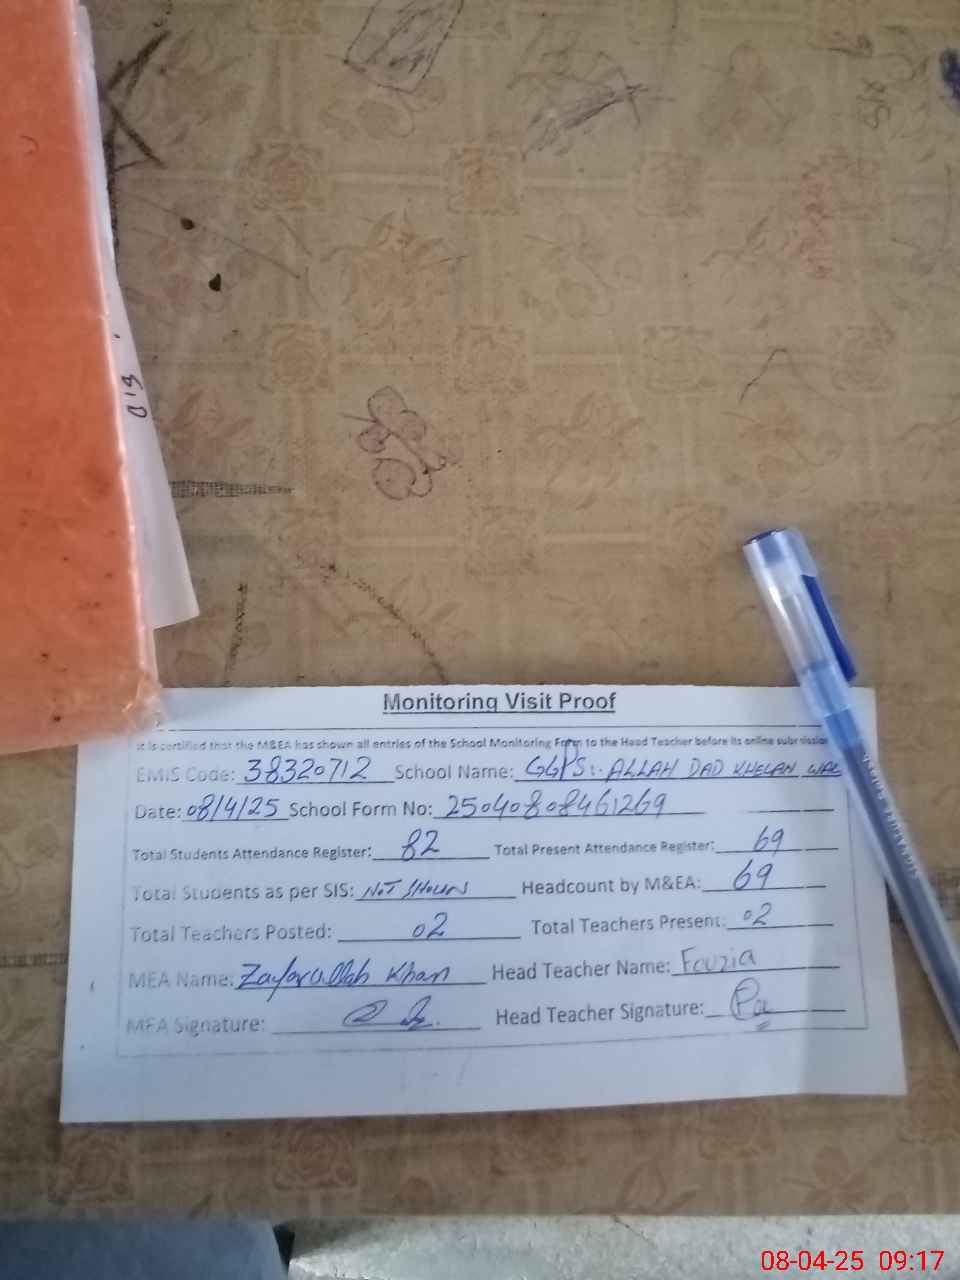 Monitoring Visit Proof
It is certified that the M&EA has shown all entries of the School Monitoring Form to the Head Teacher before its online submission
EMIS Code: 38320712 School Name: GGPS:- ALLAH DAD KHELAN WAL
Date: 08/4/25 School Form No: 25040808461269
Total Students Attendance Register: 82 Total Present Attendance Register: 69
Total Students as per SIS: NOT SHOWN Headcount by M&EA: 69
Total Teachers Posted: 02 Total Teachers Present: 02
MEA Name: Zafarullah Khan Head Teacher Name: Fouzia
MEA Signature: Head Teacher Signature:
08-04-25 09:17